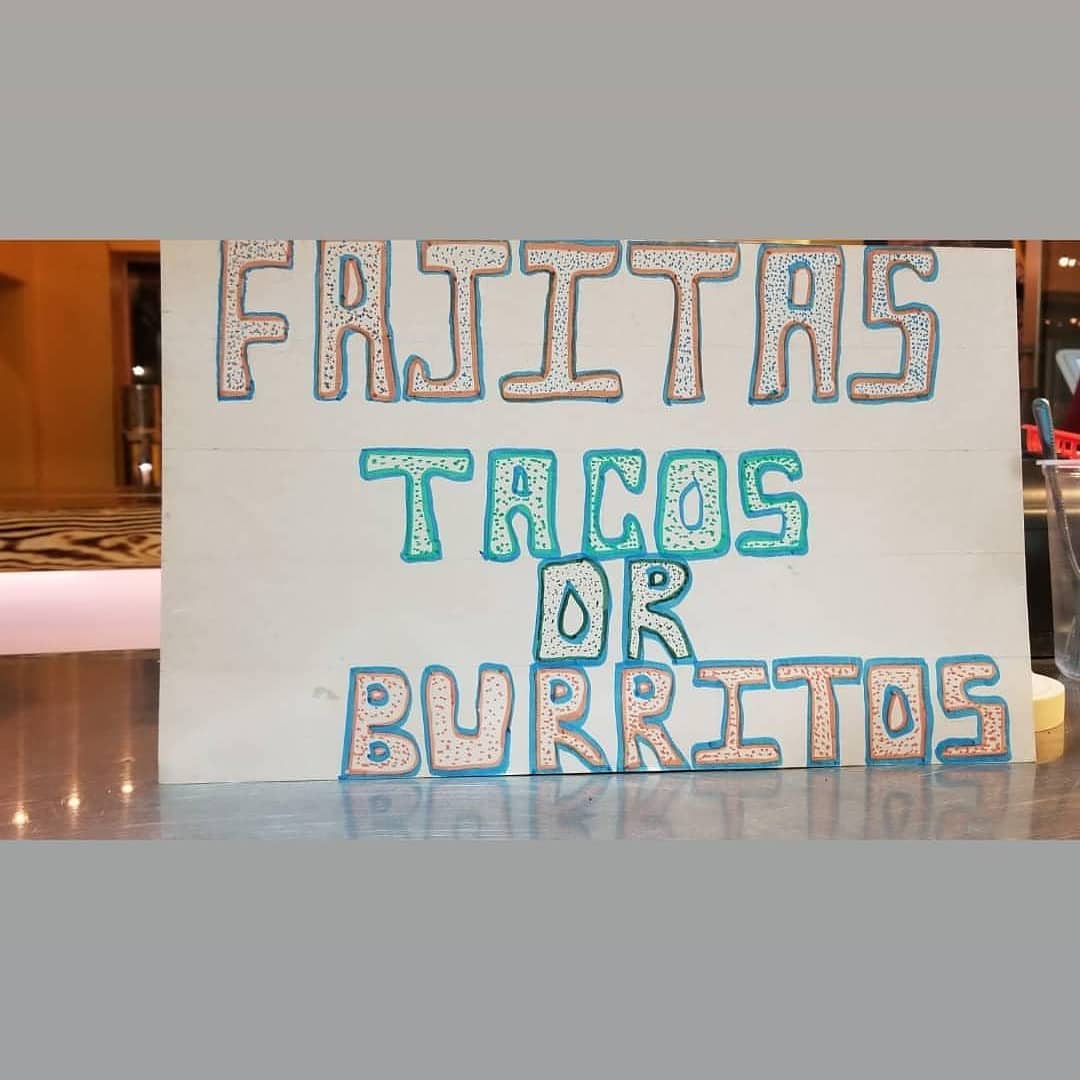 FAJITAS
TACOS
OR
BURRITOS